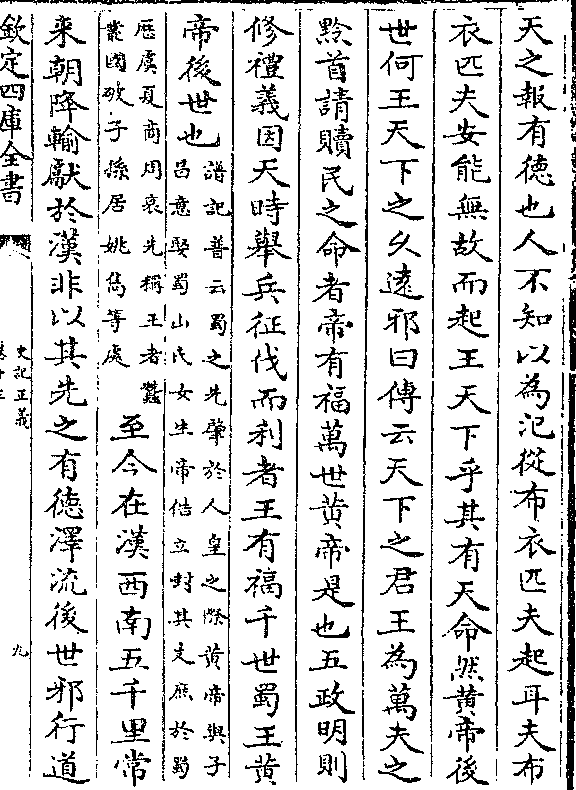 天之報有德也人不知以為氾從布衣匹夫起耳夫布
衣匹夫安能無故而起王天下乎其有天命然黄帝後
世何王天下之乆逺邪曰傳云天下之君王為萬夫之
黔首請贖民之命者帝有福萬世黄帝是也五政明則
修禮義因天時舉兵征伐而利者王有福千世蜀王黄
帝後世也譜記普云蜀之先肇於人皇之際黄帝與子
吕意娶蜀山氏女生帝俈立封其支庶於蜀
歴虞夏商周衰先稱王者蠶
叢國破子孫居姚嶲等處
至今在漢西南五千里常
来朝降輸獻於漢非以其先之有德澤流後世邪行道
欽定四庫全書
史記正義
卷十三
九